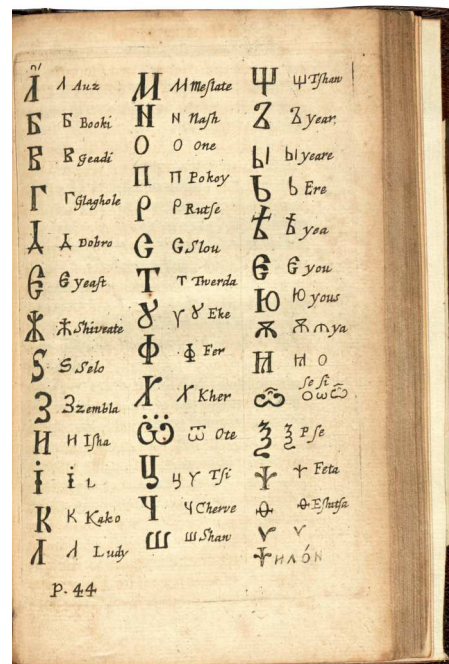 А҇ А Auz
Б Б Booki
В В Geadi
Г Г Glaghole
Д Д Dobro
Є Є yeast
Ж Ж Shiveate
Ѕ Ѕ Selo
З З zembla
И И Isha
і і ι
К К Kako
Л Л Ludy
P. 44
М М Meslate
N N Nash
О О One
П П Pokoy
Р Р Rutse
С С Slou
Т Т Twerda
Ȣ Ү Ȣ Eke
Ф Ф Fer
Х Х Kher
Ѿ Ѿ Ote
Ц Ц Ү Tsi
Ч Ч Cherve
Ш Ш Shan
Щ Щ Tshan
Ъ Ъ year
Ы Ы yeare
Ь Ь Ere
Ѣ Ѣ yea
Є Є you
Ю Ю yous
Ѫ Ѫ ya
Ꙗ Ꙗ О
Se si
Ѽ О ѡ Ѽ
Ѯ Ѯ Pse
Ѱ Ѱ Feta
Ѳ Ѳ Eshutsa
Ѵ Ѵ
Ѱ И Л О́ Н